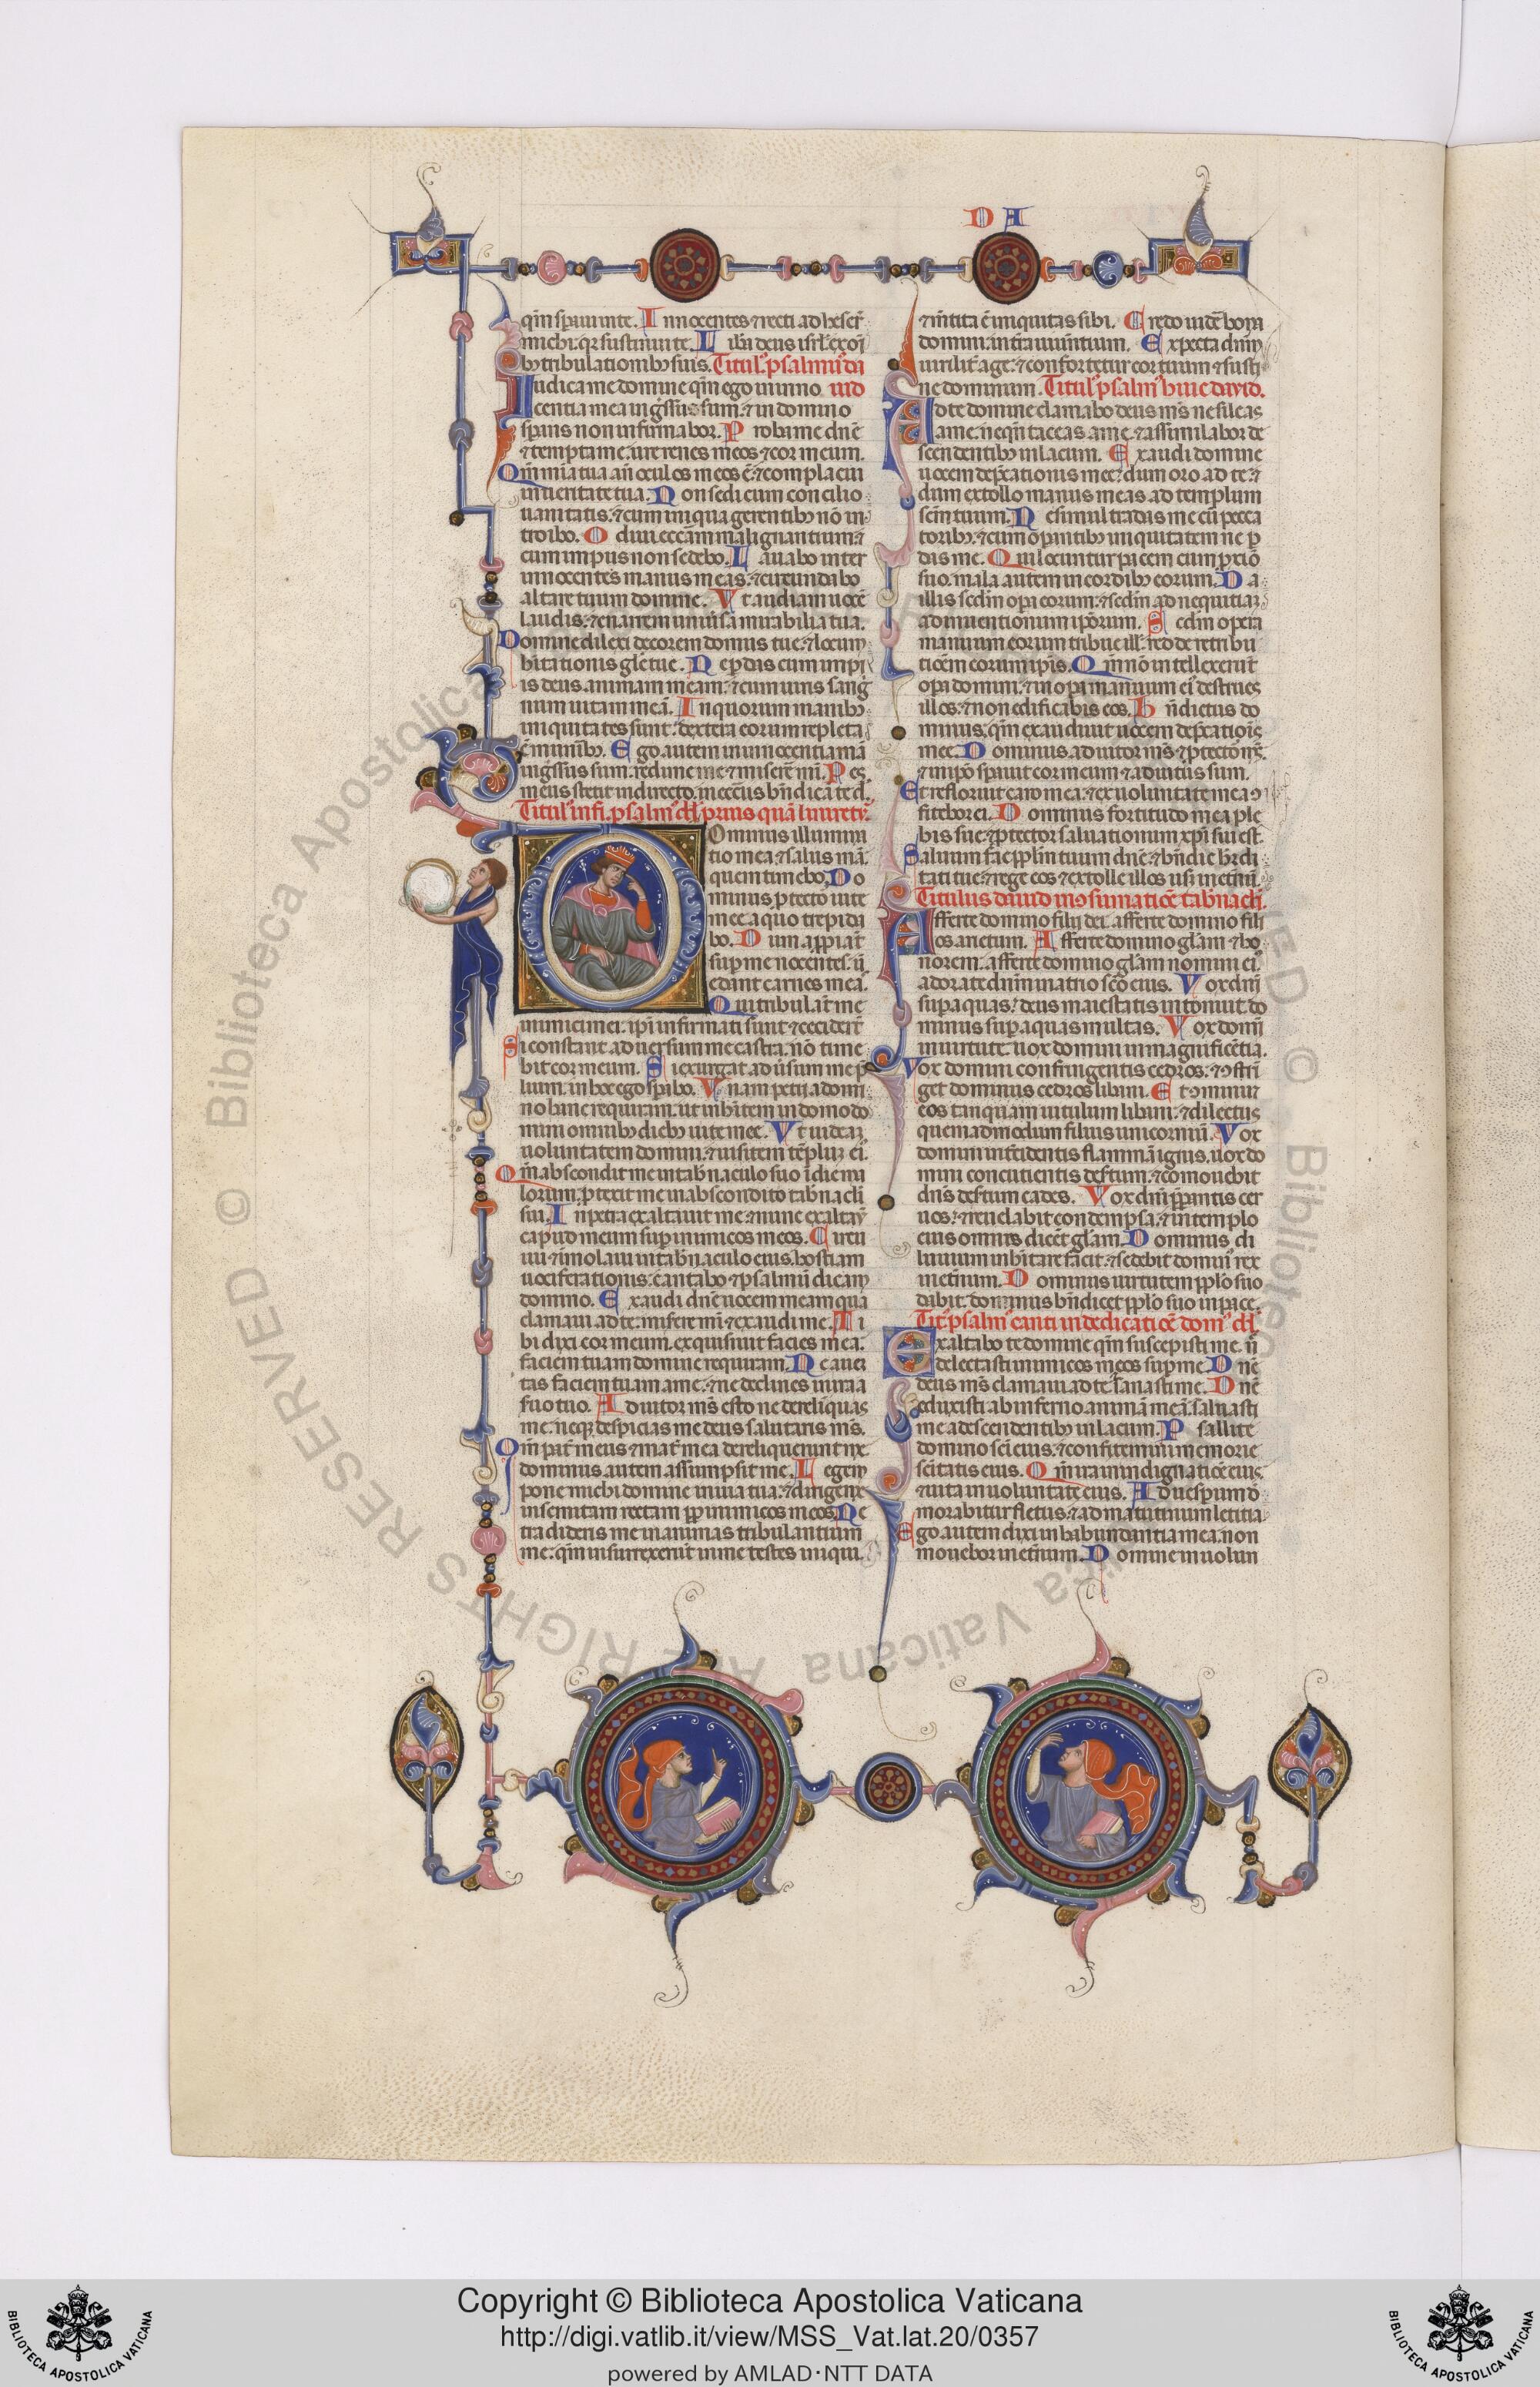 D A
qm̄ sꝑaui inte. Innocentes ⁊ recti adheser̄
michi: qꝛ sustinui te. Lib̄a deus isrl̓ ex oīb
bꝫ tribulationibꝫ suis. Titul᷒ psalmi᷒ dī
Iudica me domine qm̄ ego in inno uid
centia mea ing̃ssus sum: ⁊ in domino
sꝑans non infirmabor. Proba me dnē
⁊ tempta me: ure renes meos ⁊ cor meum.
Qm̄ mīa tua an̄ oculos meos ē: ⁊ complacui
in ueritate tua. Non sedi cum concilio
uanitatis: ⁊ cum iniqua gerentibꝫ nō in
troibo. Odiui eccām malignantium: ⁊
cum impiis non sedebo. Lauabo inter
innocentes manus meas: ⁊ circundabo
altare tuum domine. Vt audiam uocē
laudis: ⁊ enarrem uniūsa mirabilia tua.
Domine dilexi decorem domus tue: ⁊ locum
hītationis glē tue. Ne ꝑdas cum impi
is deus animam meam: ⁊ cum uiris sang
num uitam meā. In quorum manibꝫ
iniquitates sunt: dextera eorum repleta
ē munībꝫ. Ego autem in innocentia mā
ing̃ssus sum: redime me ⁊ miserē mī. Pes
meus stetit in directo: in ecc̄iis bn̄dicā te d.
Titul᷒ infi. psalm᷒ dd̓ prius quā liniretr̄.
Dominus illumina
tio mea: ⁊ salus mā.
quem timebo. Do
minus ꝓtector uite
mee: a quo trepida
bo. Dum apꝓiāt
suꝑ me nocentes: ū
edant carnes meā.
Qui tribulāt me
inimici mei: ipī infirmati sunt ⁊ cecider̄t
Si constant aduersum me castra: nō time
bit cor meum. Si exurgat adūsum me p̄
lium: in hoc ego sꝑabo. Vnam petii a domi
no hanc requiram: ut inhītem in domo do
mini omnibꝫ diebꝫ uite mee. Vt uideaꝫ
uoluntatem domini: ⁊ uisitem tēpluꝫ ei᷒.
Qm̄ abscondit me in tab̄naculo suo: ī die ma
lorum ꝓtexit me in abscondito tab̄nacli
sui. In petra exaltauit me: ⁊ nunc exaltaū
capud meum suꝑ inimicos meos. Circu
iui ⁊ imolaui in tab̄naculo eius hostiam
uociferationis: cantabo ⁊ psalmū dicam
domino. Exaudi dnē uocem meam qua
clamaui ad te: miserere mī ⁊ exaudi me. Ti
bi dixi cor meum: exquisiuit facies mea:
faciem tuam domine requiram. Ne auer
tas faciem tuam a me: ⁊ ne declines in ira a
suo tuo. Adiutor ms̄ esto: ne derelīquas
me: neqꝫ despicias me deus salutaris ms̄.
Qm̄ pat̄ meus ⁊ mat̄ mea dereliquerunt me
dominus autem assumpsit me. Legem
pone michi domine in uia tua: ⁊ dirige me
in semitam rectam ꝓpter inimicos meos. Ne
tradideris me in animas tribulantium
me: qm̄ insurrexerūt in me testes iniqui.
⁊ mētita ē iniquitas sibi. Credo uidē bona
domini: in tr̄a uiuentium. Expecta dnm̄
uirilit̄ age: ⁊ confortetur cor tuum ⁊ susti
ne dominum. Titul᷒ psalm᷒ huic dauid.
Ad te domine clamabo deus ms̄ ne sileas
a me: neqn̄ taceas a me: ⁊ assimilabor de
scendentibꝫ in lacum. Exaudi domine
uocem dep̄cationis mee: dum oro ad te: ⁊
dum extollo manus meas ad templum
scm̄ tuum. Ne simul tradas me cū pecca
toribꝫ: ⁊ cum oꝑantibꝫ iniquitatem ne ꝑ
das me. Qui locuntur pacem cum ꝓxīo
suo: mala autem in cordibꝫ eorum. Da
illis scd̄m oꝑa eorum: ⁊ scd̄m ad nequitiaꝫ
adinuentionum ipōrum. Scdm opera
manuum eorum tribue ill̓: redde retribu
tiōem eorum ipīs. Qm̄ nō intellexerūt
oꝑa domini: ⁊ in oꝑa manuum ei᷒ destrues
illos: ⁊ non edificabis eos. Bn̄dictus do
minus: qm̄ exaudiuit uocem dep̄catiois
mee. Dominus adiutor ms̄ ⁊ ꝓtector ms̄:
⁊ in ipō sꝑauit cor meum ⁊ adiutus sum.
Et refloruit caro mea: ⁊ ex uoluntate mea ꝯ
fitebor ei. Dominus fortitudo mea ple
bis sue: ⁊ ꝓtector saluationum xp̄i sui est.
Saluum fac ppl̄m tuum dnē: ⁊ bn̄dic h̄edi
tati tue: ⁊ rege eos ⁊ extolle illos usꝫ in et̄nū.
Titulus dauid in ꝯsumatiōe tab̄nacli.
Afferte domino filii dei: afferte domino fili
os arietum. Afferte domino glām ⁊ ho
norem: afferte domino glām nomini ei᷒
adorate dnm̄ in atrio scō eius. Vox dnī
suꝑ aquas: deus maiestatis intonuit do
minus suꝑ aquas multas. Vox domī
in uirtute: uox domini in magnificētia.
Vox domini confringentis cedros: ⁊ ꝯfrī
get dominus cedros libani. Et ꝯminuet
eos tanquam uitulum libani: ⁊ dilectus
quemadmodum filius unicorniū. Vox
domini intercidentis flammā ignis: uox do
mini concutientis desertum: ⁊ cōmouebit
dnīs desertum cades. Vox dnī p̄parantis cer
uos: ⁊ reuelabit condempsa: ⁊ in templo
eius omnes dicēt glām. Dominus di
luuium inhītare facit: ⁊ sedebit domin᷒ rex
in et̄num. Dominus uirtutem ppl̄o suo
dabit: dominus bn̄dicet ppl̄o suo in pace.
Tit᷒ psalm᷒ canti in dedicatiōe dom᷒ dd̓
Exaltabo te domine qm̄ suscepisti me: ⁊ n̄
delectasti inimicos meos suꝑ me. Dnē
deus ms̄ clamaui ad te: ⁊ sanasti me. Dnē
eduxisti ab inferno animā meā: saluasti
me a descendentibꝫ in lacum. Psallite
domino scī eius: ⁊ confitemini memorie
scītatis eius. Qm̄ ira in indignatiōe eius:
⁊ uita in uoluntate eius. Ad uesꝑum dē
morabitur fletus: ⁊ ad matutinum letitia
Ego autem dixi in habundantia mea: non
mouebor in et̄num. Domine in uolun
Copyright © Biblioteca Apostolica Vaticana
http://digi.vatlib.it/view/MSS_Vat.lat.20/0357
powered by AMLAD·NTT DATA
BIBLIOTECA APOSTOLICA VATICANA
BIBLIOTECA APOSTOLICA VATICANA